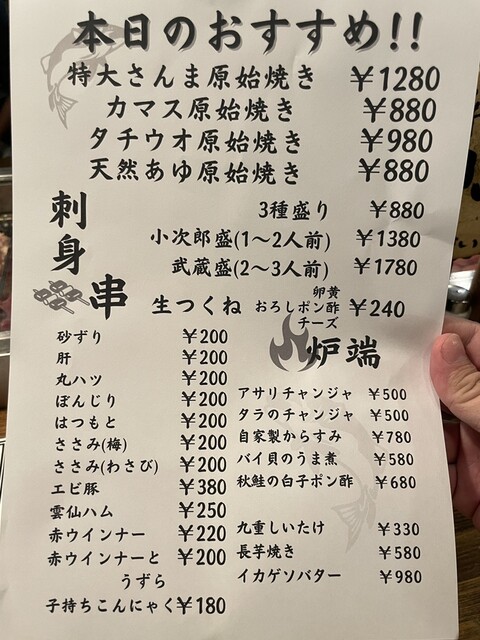 本日のおすすめ!!
特大さんま原始焼き ￥1280
カマス原始焼き ￥880
タチウオ原始焼き ￥980
天然あゆ原始焼き ￥880
刺身
3種盛り ￥880
小次郎盛(1〜2人前) ￥1380
武蔵盛(2〜3人前) ￥1780
串
生つくね 卵黄 おろしポン酢 チーズ ￥240
砂ずり ￥200
肝 ￥200
丸ハツ ￥200
ぼんじり ￥200
はつもと ￥200
ささみ(梅) ￥200
ささみ(わさび) ￥200
エビ豚 ￥380
雲仙ハム ￥250
赤ウインナー ￥220
赤ウインナーと ￥200
うずら
子持ちこんにゃく ￥180
炉端
アサリチャンジャ ￥500
タラのチャンジャ ￥500
自家製からすみ ￥780
バイ貝のうま煮 ￥580
秋鮭の白子ポン酢 ￥680
九重しいたけ ￥330
長芋焼き ￥580
イカゲソバター ￥980